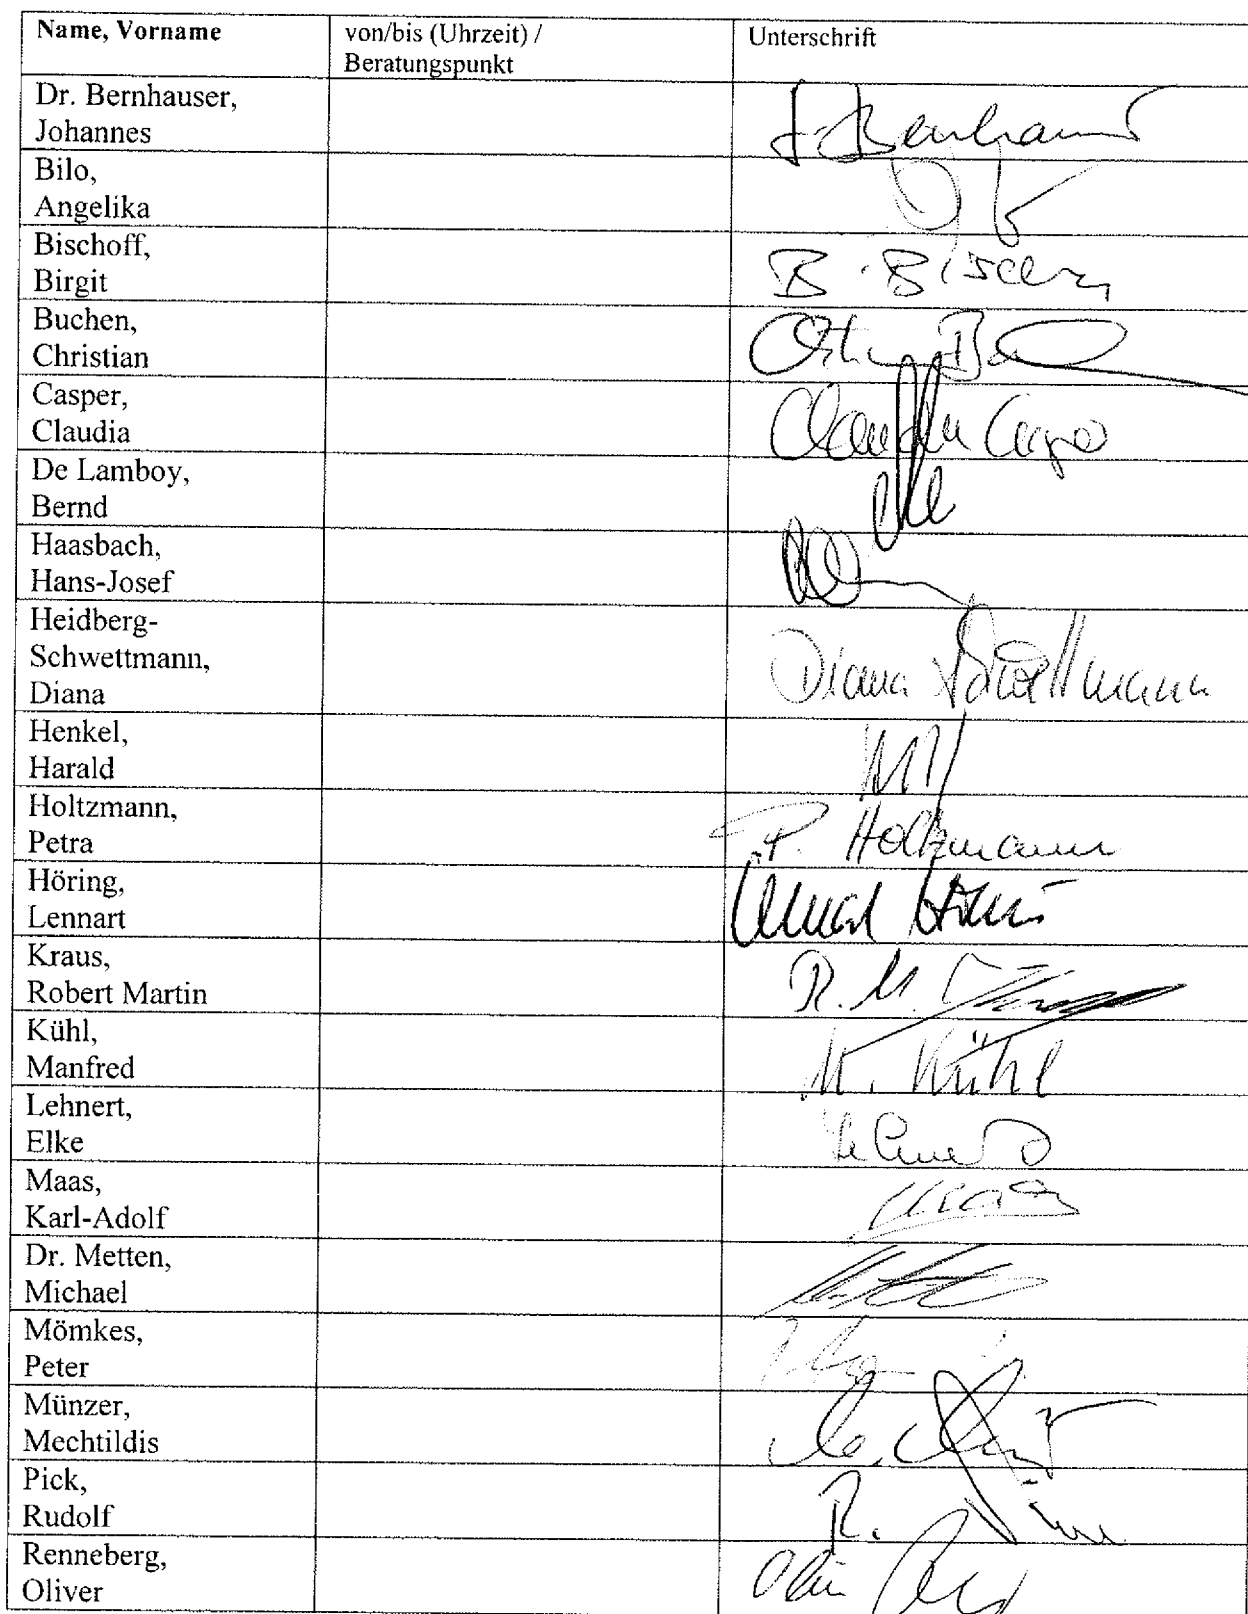 Name, Vorname
von/bis (Uhrzeit) /
Beratungspunkt
Unterschrift
Dr. Bernhauser,
Johannes
Bilo,
Angelika
Bischoff,
Birgit
B. Bischoff
Buchen,
Christian
Casper,
Claudia
Claudia Casper
De Lamboy,
Bernd
Haasbach,
Hans-Josef
Heidberg-
Schwettmann,
Diana
Diana Schwettmann
Henkel,
Harald
Holtzmann,
Petra
P. Holtzmann
Höring,
Lennart
Kraus,
Robert Martin
R. M.
Kühl,
Manfred
M. Kühl
Lehnert,
Elke
Lehnert
Maas,
Karl-Adolf
Maas
Dr. Metten,
Michael
Mömkes,
Peter
Münzer,
Mechtildis
Pick,
Rudolf
R.
Renneberg,
Oliver